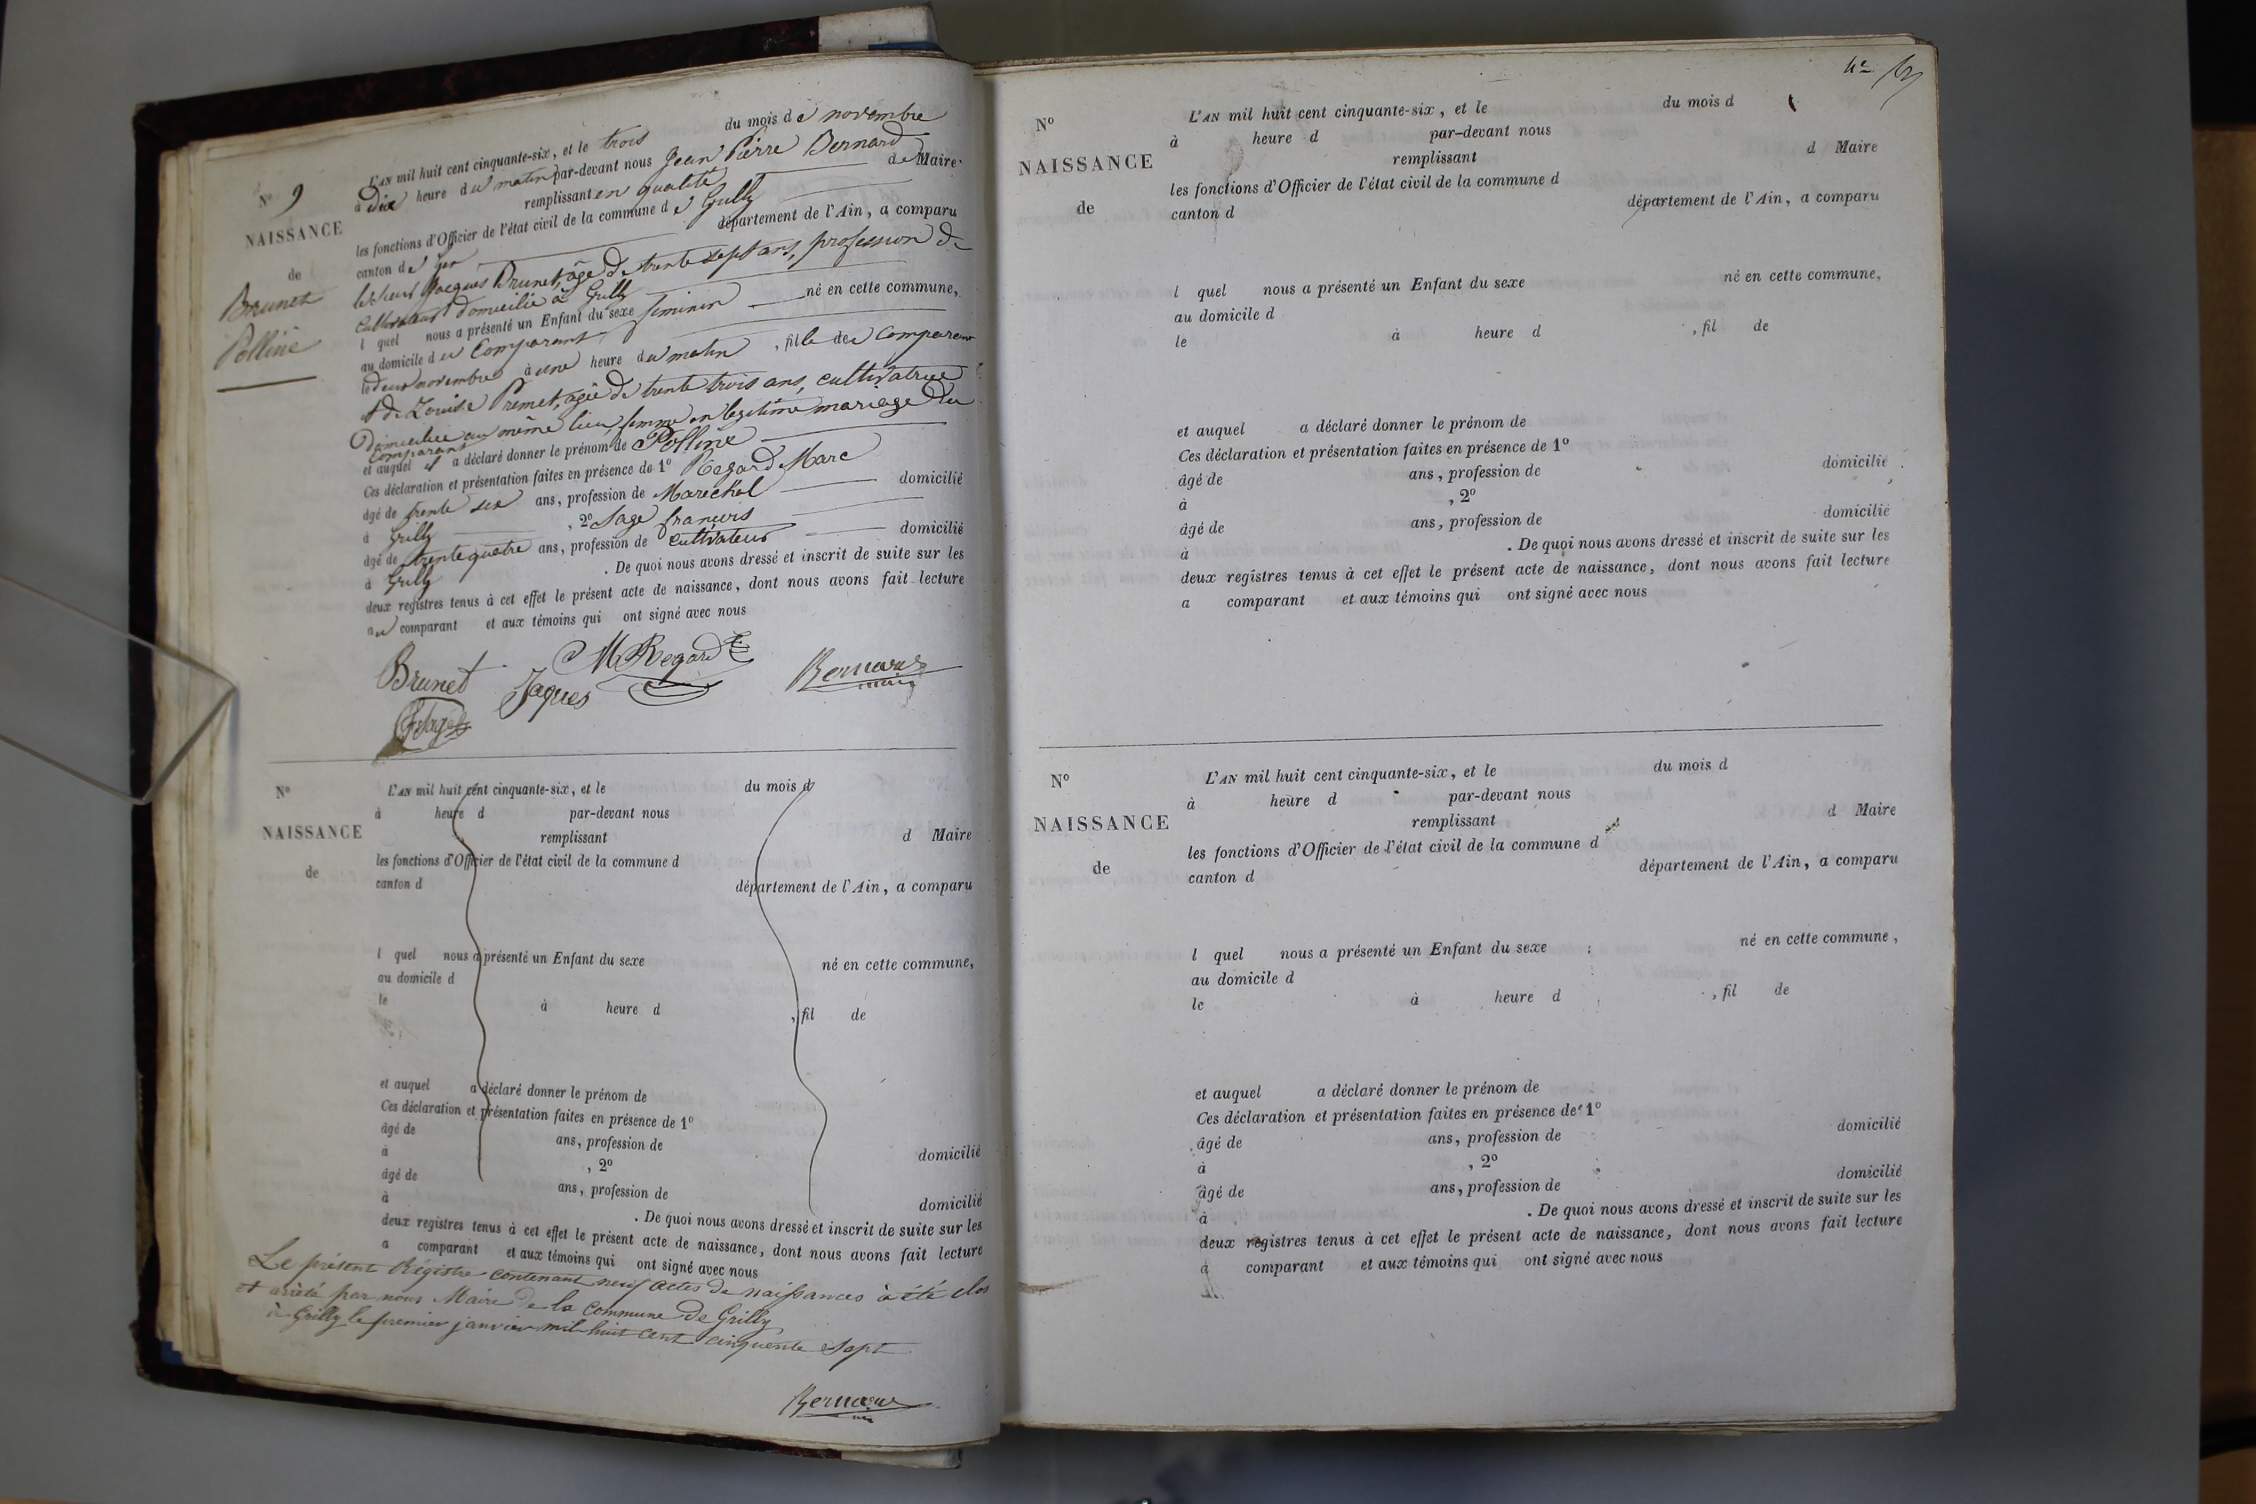 N° 9
NAISSANCE
de
Brunet
Polline
L'AN mil huit cent cinquante-six, et le trois du mois de novembre
à dix heure du matin par-devant nous Jean Pierre Bernard
remplissant en qualité de Maire
les fonctions d'Officier de l'état civil de la commune de Grilly
canton de Gex département de l'Ain, a comparu
le sieur Jacques Brunet, âgé de trente sept ans, profession de
cultivateur domicilié à Grilly
l quel nous a présenté un Enfant du sexe féminin né en cette commune,
au domicile du Comparant
le deux novembre à une heure du matin, fille de Comparant
et de Louise Premet, agée de trente trois ans, cultivatrice
Domiciliée au même lieu, femme en legitime mariage du
Comparant
et auquel il a déclaré donner le prénom de Polline
Ces déclaration et présentation faites en présence de 1° Regard Marc
âgé de trente six ans, profession de Maréchal domicilié
à Grilly, 2° Sage françois
âgé de trente quatre ans, profession de cultivateur domicilié
à Grilly. De quoi nous avons dressé et inscrit de suite sur les
deux registres tenus à cet effet le présent acte de naissance, dont nous avons fait lecture
au comparant et aux témoins qui ont signé avec nous
M Regard
Brunet Jaques Bernard
maire
F Sage
N°
NAISSANCE
de
L'AN mil huit cent cinquante-six, et le du mois d
à heure d par-devant nous
remplissant d Maire
les fonctions d'Officier de l'état civil de la commune d
canton d département de l'Ain, a comparu
l quel nous a présenté un Enfant du sexe né en cette commune,
au domicile d
le à heure d , fil de
et auquel a déclaré donner le prénom de
Ces déclaration et présentation faites en présence de 1°
âgé de ans, profession de domicilié
à , 2°
âgé de ans, profession de domicilié
à . De quoi nous avons dressé et inscrit de suite sur les
deux registres tenus à cet effet le présent acte de naissance, dont nous avons fait lecture
a comparant et aux témoins qui ont signé avec nous
Le présent Régistre contenant neuf actes de naissances à été clos
et arrêté par nous Maire de la Commune de Grilly
à Grilly le premier janvier mil huit cent cinquante sept
Bernard
4e
N°
NAISSANCE
de
L'AN mil huit cent cinquante-six, et le du mois d
à heure d par-devant nous
remplissant d Maire
les fonctions d'Officier de l'état civil de la commune d
canton d département de l'Ain, a comparu
l quel nous a présenté un Enfant du sexe né en cette commune,
au domicile d
le à heure d , fil de
et auquel a déclaré donner le prénom de
Ces déclaration et présentation faites en présence de 1°
âgé de ans, profession de domicilié
à , 2°
âgé de ans, profession de domicilié
à . De quoi nous avons dressé et inscrit de suite sur les
deux registres tenus à cet effet le présent acte de naissance, dont nous avons fait lecture
a comparant et aux témoins qui ont signé avec nous
N°
NAISSANCE
de
L'AN mil huit cent cinquante-six, et le du mois d
à heure d par-devant nous
remplissant d Maire
les fonctions d'Officier de l'état civil de la commune d
canton d département de l'Ain, a comparu
l quel nous a présenté un Enfant du sexe né en cette commune,
au domicile d
le à heure d , fil de
et auquel a déclaré donner le prénom de
Ces déclaration et présentation faites en présence de 1°
âgé de ans, profession de domicilié
à , 2°
âgé de ans, profession de domicilié
à . De quoi nous avons dressé et inscrit de suite sur les
deux registres tenus à cet effet le présent acte de naissance, dont nous avons fait lecture
a comparant et aux témoins qui ont signé avec nous